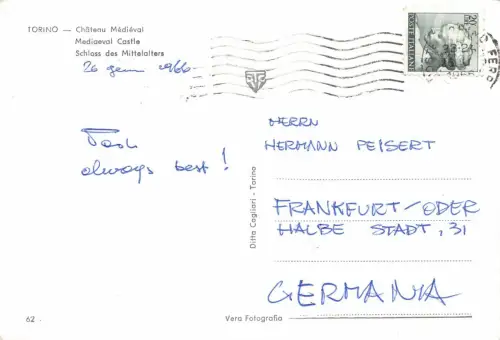 TORINO — Château Médiéval
Mediaeval Castle
Schloss des Mittelalters
26 genn 1966
always best!
HERRN
HERMANN PEISERT
FRANKFURT/ODER
HALBE STADT, 31
GERMANIA
Ditta Cagliari - Torino
62
Vera Fotografia
POSTE ITALIANE